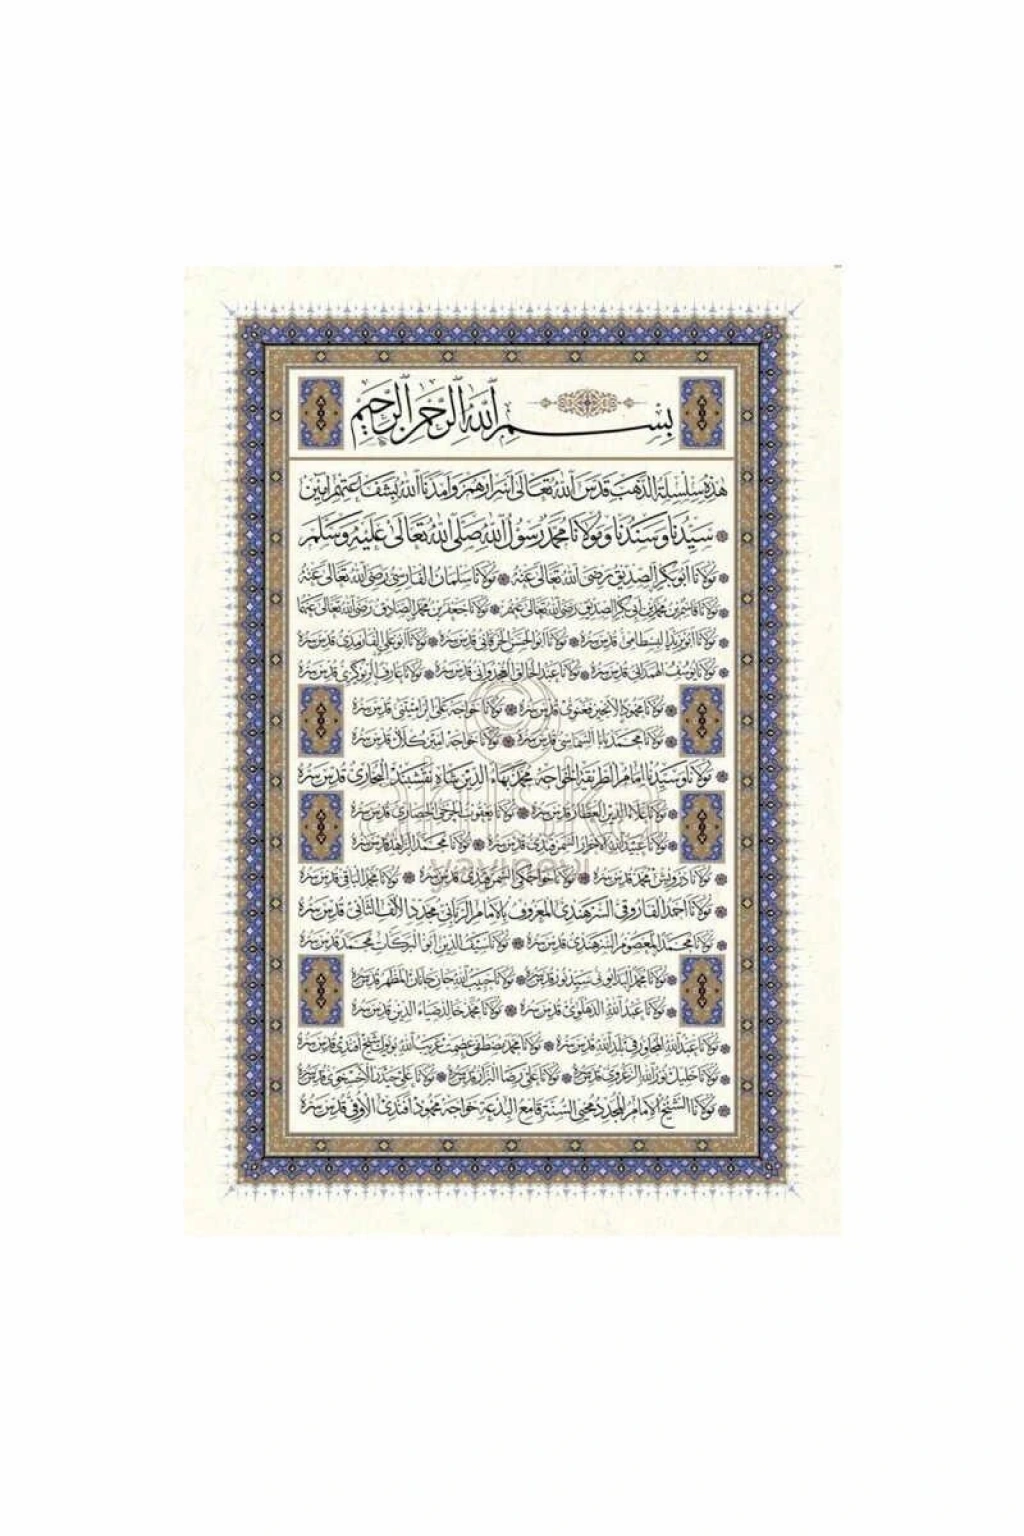 بسم الله الرحمن الرحيم
هذه سلسلة الذهب قدس الله تعالى أسرارهم وأمدنا الله بشفاعتهم آمين
سيدنا وسندنا ومولانا محمد رسول الله صلى الله تعالى عليه وسلم
مولانا أبو بكر الصديق رضي الله تعالى عنه مولانا سلمان الفارسي رضي الله تعالى عنه
مولانا قاسم بن محمد بن أبي بكر الصديق رضي الله تعالى عنهم مولانا جعفر بن محمد الصادق رضي الله تعالى عنهما
مولانا أبو يزيد البسطامي قدس سره مولانا أبو الحسن الخرقاني قدس سره مولانا أبو علي الفارمدي قدس سره
مولانا يوسف الهمداني قدس سره مولانا عبد الخالق الغجدواني قدس سره مولانا عارف الريوكري قدس سره
مولانا محمود الانجير فغنوي قدس سره مولانا خواجه علي الراميتني قدس سره
مولانا محمد بابا السماسي قدس سره مولانا خواجه أمير كلال قدس سره
مولانا وسيدنا امام الطريقة الخواجه محمد بهاء الدين شاه نقشبند البخاري قدس سره
مولانا علاء الدين العطار قدس سره مولانا يعقوب الجرخي الحصاري قدس سره
مولانا عبيد الله الاحرار السمرقندي قدس سره مولانا محمد الزاهد قدس سره
مولانا درويش محمد قدس سره مولانا خواجكي السمرقندي قدس سره مولانا محمد الباقي قدس سره
مولانا احمد الفاروقي السرهندي المعروف بالامام الرباني مجدد الالف الثاني قدس سره
مولانا محمد المعصوم السرهندي قدس سره مولانا سيف الدين أبو البركات محمد قدس سره
مولانا محمد البداوني سيد نور قدس سره مولانا حبيب الله جان جانان المظهر قدس سره
مولانا عبد الله الدهلوي قدس سره مولانا محمد خالد ضياء الدين قدس سره
مولانا عبد الله المجاور في بلد الله قدس سره مولانا محمد مصطفى عصمت غريب الله شيخ أفندي قدس سره
مولانا خليل نور الله الزغروي قدس سره مولانا علي رضا البزاز قدس سره مولانا علي حيدر الأخسخوي قدس سره
مولانا الشيخ الامام المجدد محيي السنة قامع البدعة خواجه محمود أفندي الأوفي قدس سره
yayınevi